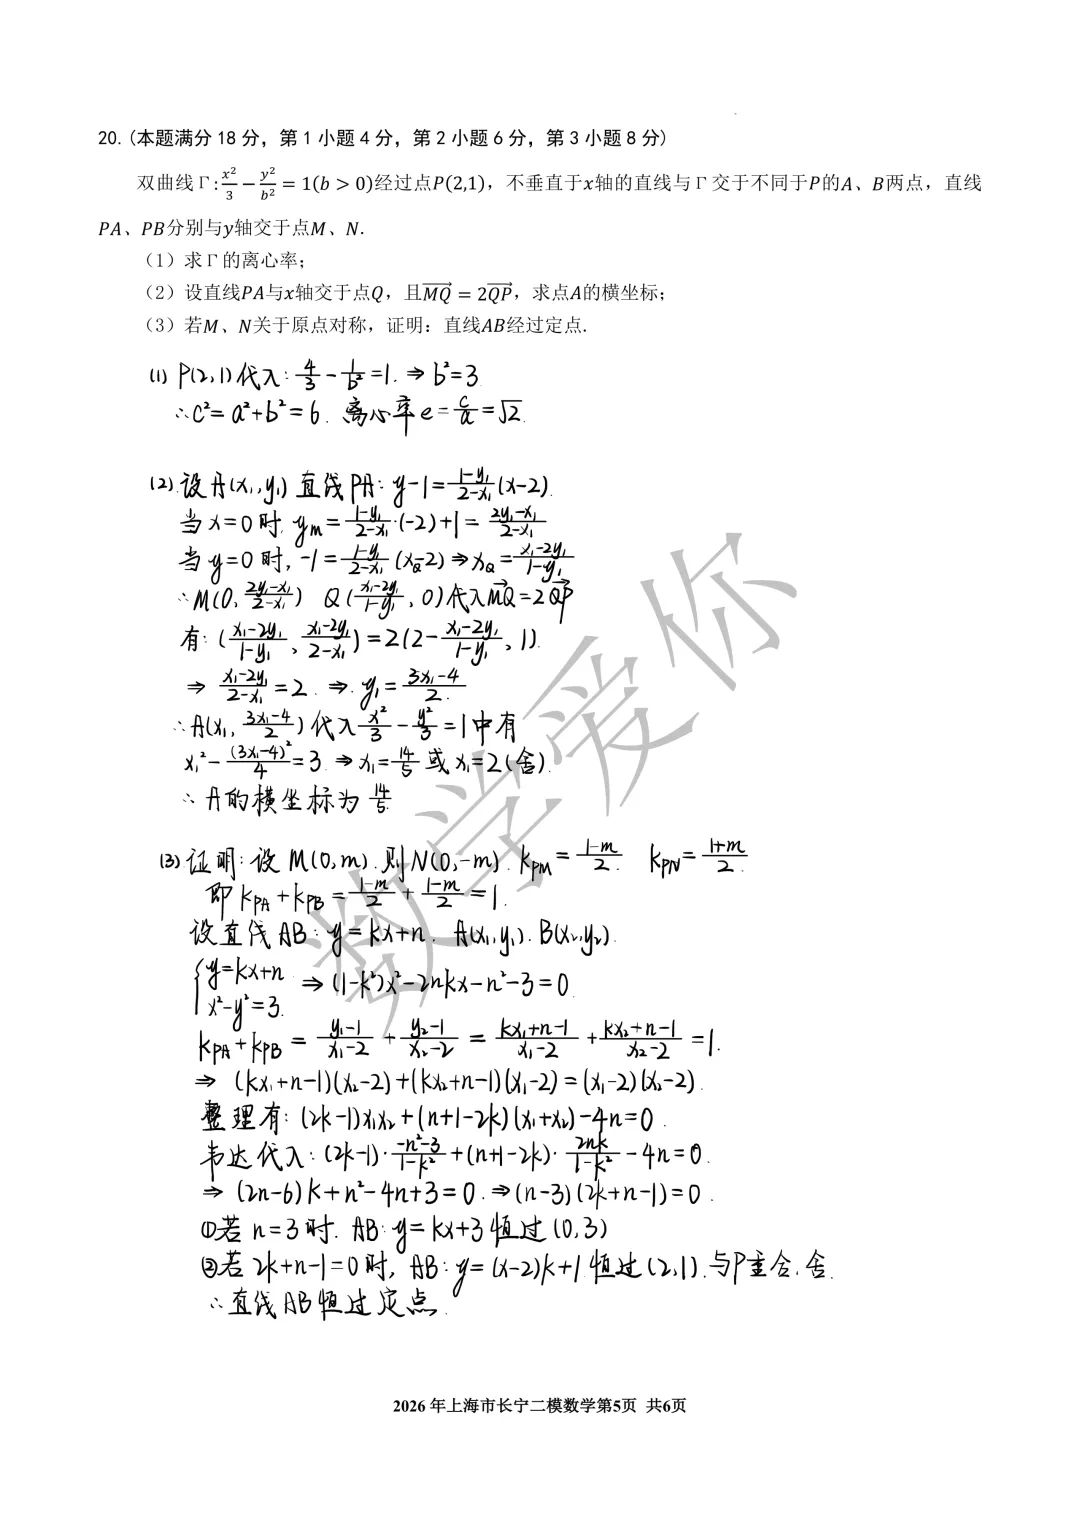 20. (本题满分 18 分，第 1 小题 4 分，第 2 小题 6 分，第 3 小题 8 分)
双曲线Γ: x²/3 − y²/b² = 1(b > 0)经过点P(2,1)，不垂直于x轴的直线与Γ交于不同于P的A、B两点，直线
PA、PB分别与y轴交于点M、N.
（1）求Γ的离心率；
（2）设直线PA与x轴交于点Q，且MQ→ = 2QP→，求点A的横坐标；
（3）若M、N关于原点对称，证明：直线AB经过定点.
(1) P(2,1)代入: 4/3 − 1/b² = 1. ⇒ b²=3
∴c² = a²+b² = 6. 离心率 e = c/a = √2.
(2). 设A(x₁,y₁) 直线PA: y−1 = (1−y₁)/(2−x₁) (x−2).
当 x=0 时, y_m = (1−y₁)/(2−x₁)·(−2)+1 = (2y₁−x₁)/(2−x₁)
当 y=0 时, −1 = (1−y₁)/(2−x₁) (x_Q−2) ⇒ x_Q = (x₁−2y₁)/(1−y₁)
∴M(0, (2y₁−x₁)/(2−x₁)) Q((x₁−2y₁)/(1−y₁), 0)代入MQ→=2QP→
有: ((x₁−2y₁)/(1−y₁), (x₁−2y₁)/(2−x₁)) = 2(2−(x₁−2y₁)/(1−y₁), 1).
⇒ (x₁−2y₁)/(2−x₁) = 2. ⇒. y₁ = (3x₁−4)/2.
∴A(x₁, (3x₁−4)/2) 代入 x²/3 − y²/3 = 1 中有
x₁² − (3x₁−4)²/4 = 3 ⇒ x₁ = 14/5 或 x₁=2(舍).
∴ A的横坐标为 14/5
(3). 证明: 设 M(0,m). 则N(0,−m). k_PM = (1−m)/2. k_PN = (1+m)/2.
即 k_PA + k_PB = (1−m)/2 + (1−m)/2 = 1.
设直线AB: y=kx+n. A(x₁,y₁). B(x₂,y₂).
{y=kx+n ⇒ (1−k²)x²−2nkx−n²−3=0.
x²−y²=3.
k_PA + k_PB = (y₁−1)/(x₁−2) + (y₂−1)/(x₂−2) = (kx₁+n−1)/(x₁−2) + (kx₂+n−1)/(x₂−2) = 1.
⇒ (kx₁+n−1)(x₂−2)+(kx₂+n−1)(x₁−2)=(x₁−2)(x₂−2).
整理有: (2k−1)x₁x₂+(n+1−2k)(x₁+x₂)−4n=0.
韦达代入: (2k−1)·(−n²−3)/(1−k²)+(n+1−2k)·2nk/(1−k²)−4n=0.
⇒ (2n−6)k+n²−4n+3=0. ⇒(n−3)(2k+n−1)=0.
①若 n=3时. AB: y=kx+3 恒过 (0,3)
②若 2k+n−1=0时, AB: y=(x−2)k+1 恒过(2,1).与P重合.舍.
∴直线AB恒过定点.
数学爱你
2026 年上海市长宁二模数学第5页 共6页